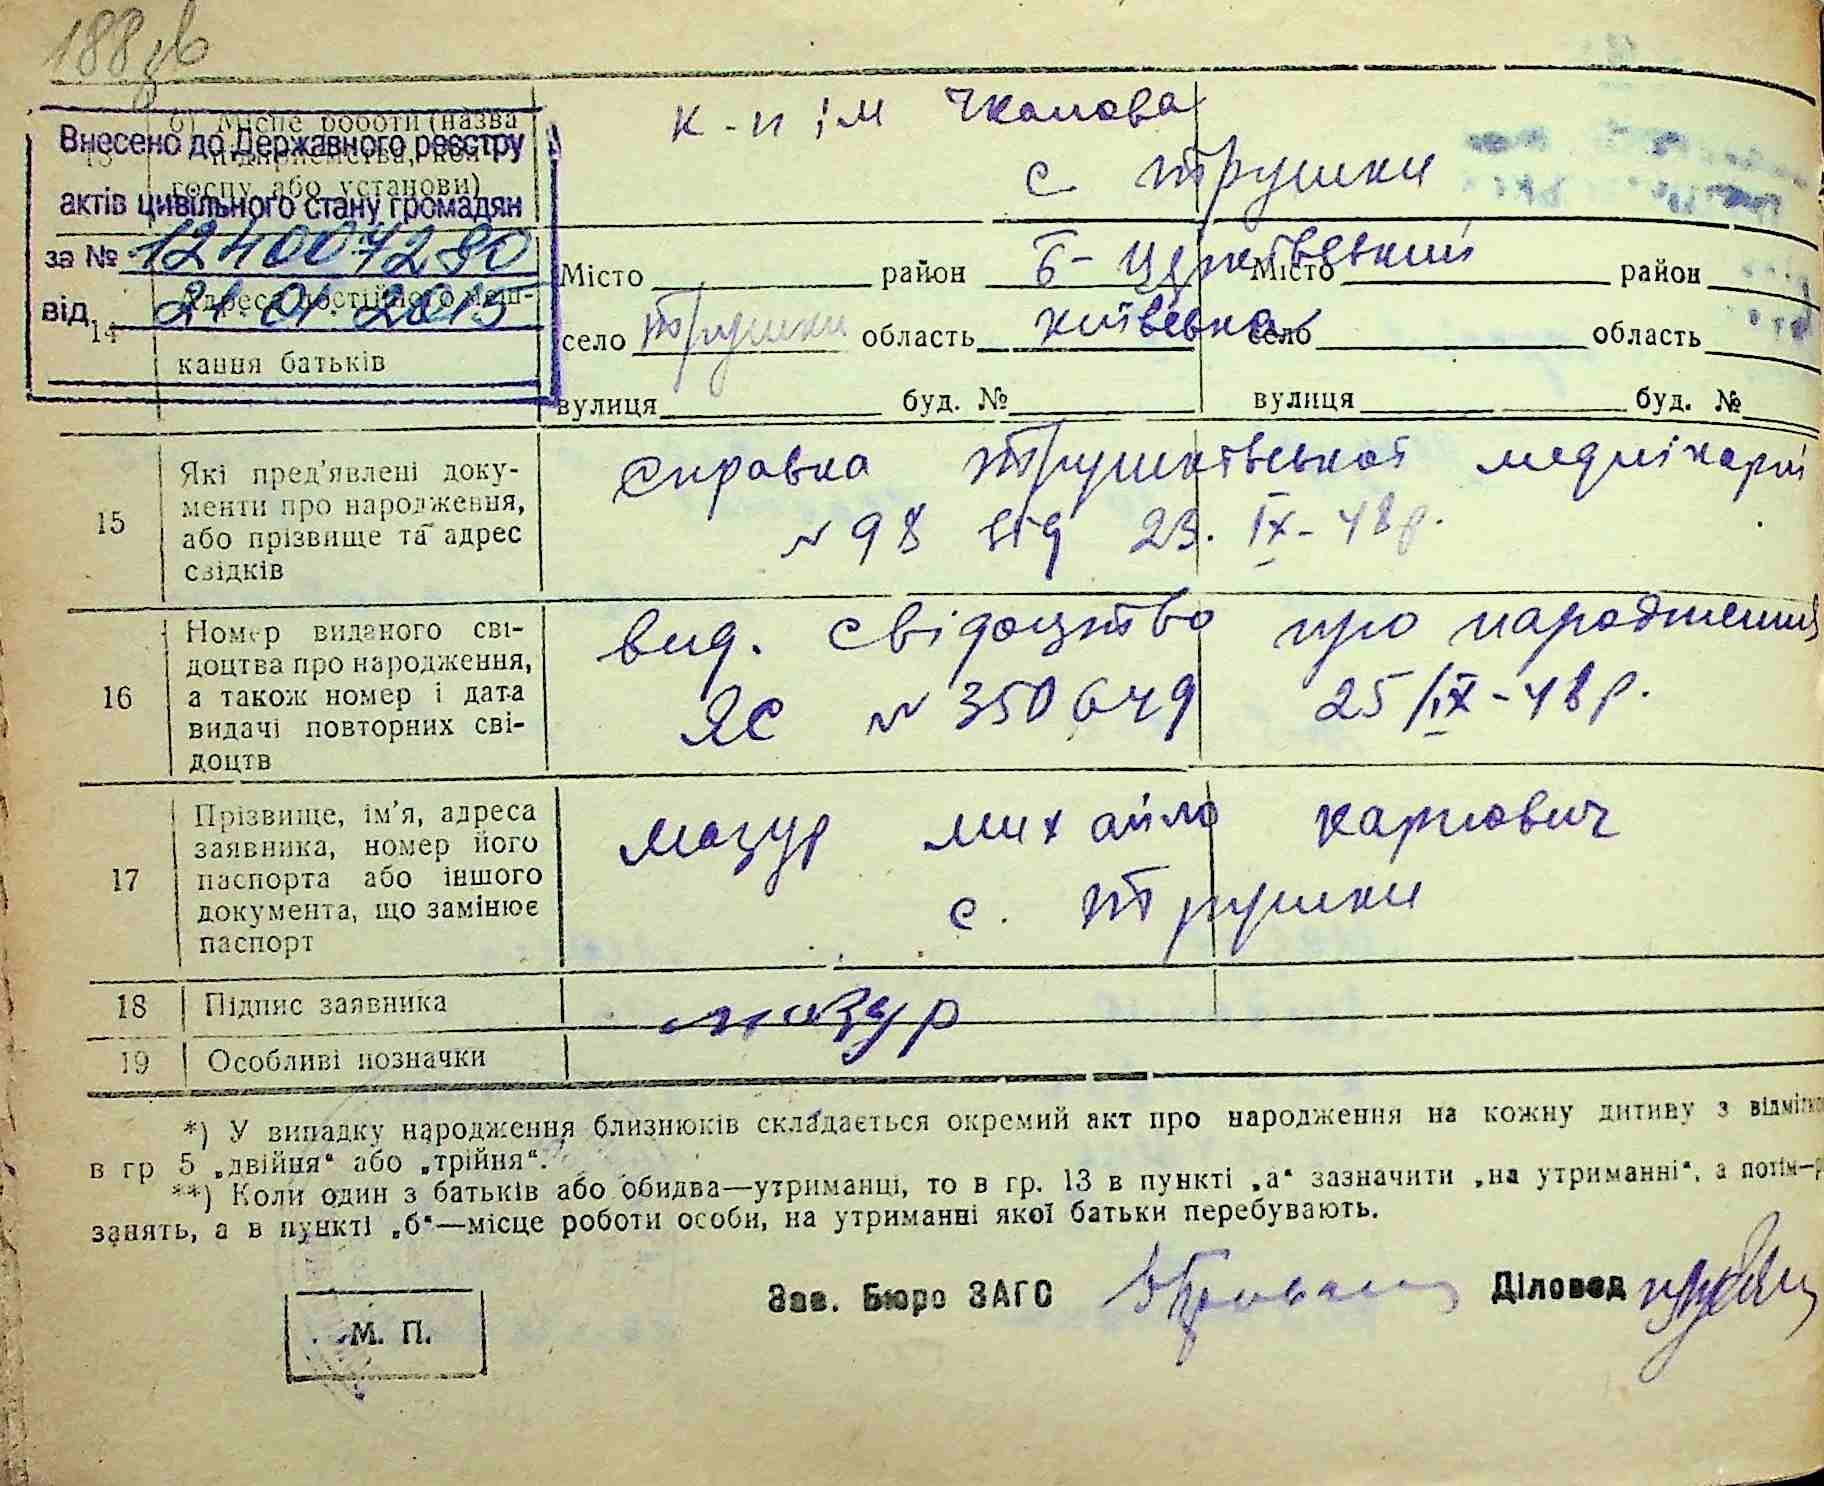 188 зв
б) Місце роботи (назва
13 підприємства, кол-
госпу або установи)
к-п ім Чкалова
с Трушки
Внесено до Державного реєстру
актів цивільного стану громадян
за № 12400074280
від 21.01.2015
14 Адреса постійного меш-
кання батьків
Місто район Б-Церквський Місто район
село Трушки область Київська село область
вулиця буд. № вулиця буд. №
15 Які пред'явлені доку-
менти про народження,
або прізвище та адрес
свідків
справка Трушківської медлікарні
N 98 від 23. IX-48р.
16 Номер виданого сві-
доцтва про народження,
а також номер і дата
видачі повторних сві-
доцтв
вид. свідоцтво про народження
ЯС N 350649 25/IX-48р.
17 Прізвище, ім'я, адреса
заявника, номер його
паспорта або іншого
документа, що замінює
паспорт
Мазур Михайло Карпович
с. Трушки
18 Підпис заявника Мазур
19 Особливі позначки
*) У випадку народження близнюків складається окремий акт про народження на кожну дитину з
в гр 5 „двійня“ або „трійня“.
**) Коли один з батьків або обидва—утриманці, то в гр. 13 в пункті „а“ зазначити „на утриманні“, а потім—
занять, а в пункті „б“—місце роботи особи, на утриманні якої батьки перебувають.
Зав. Бюро ЗАГС Діловод
М. П.